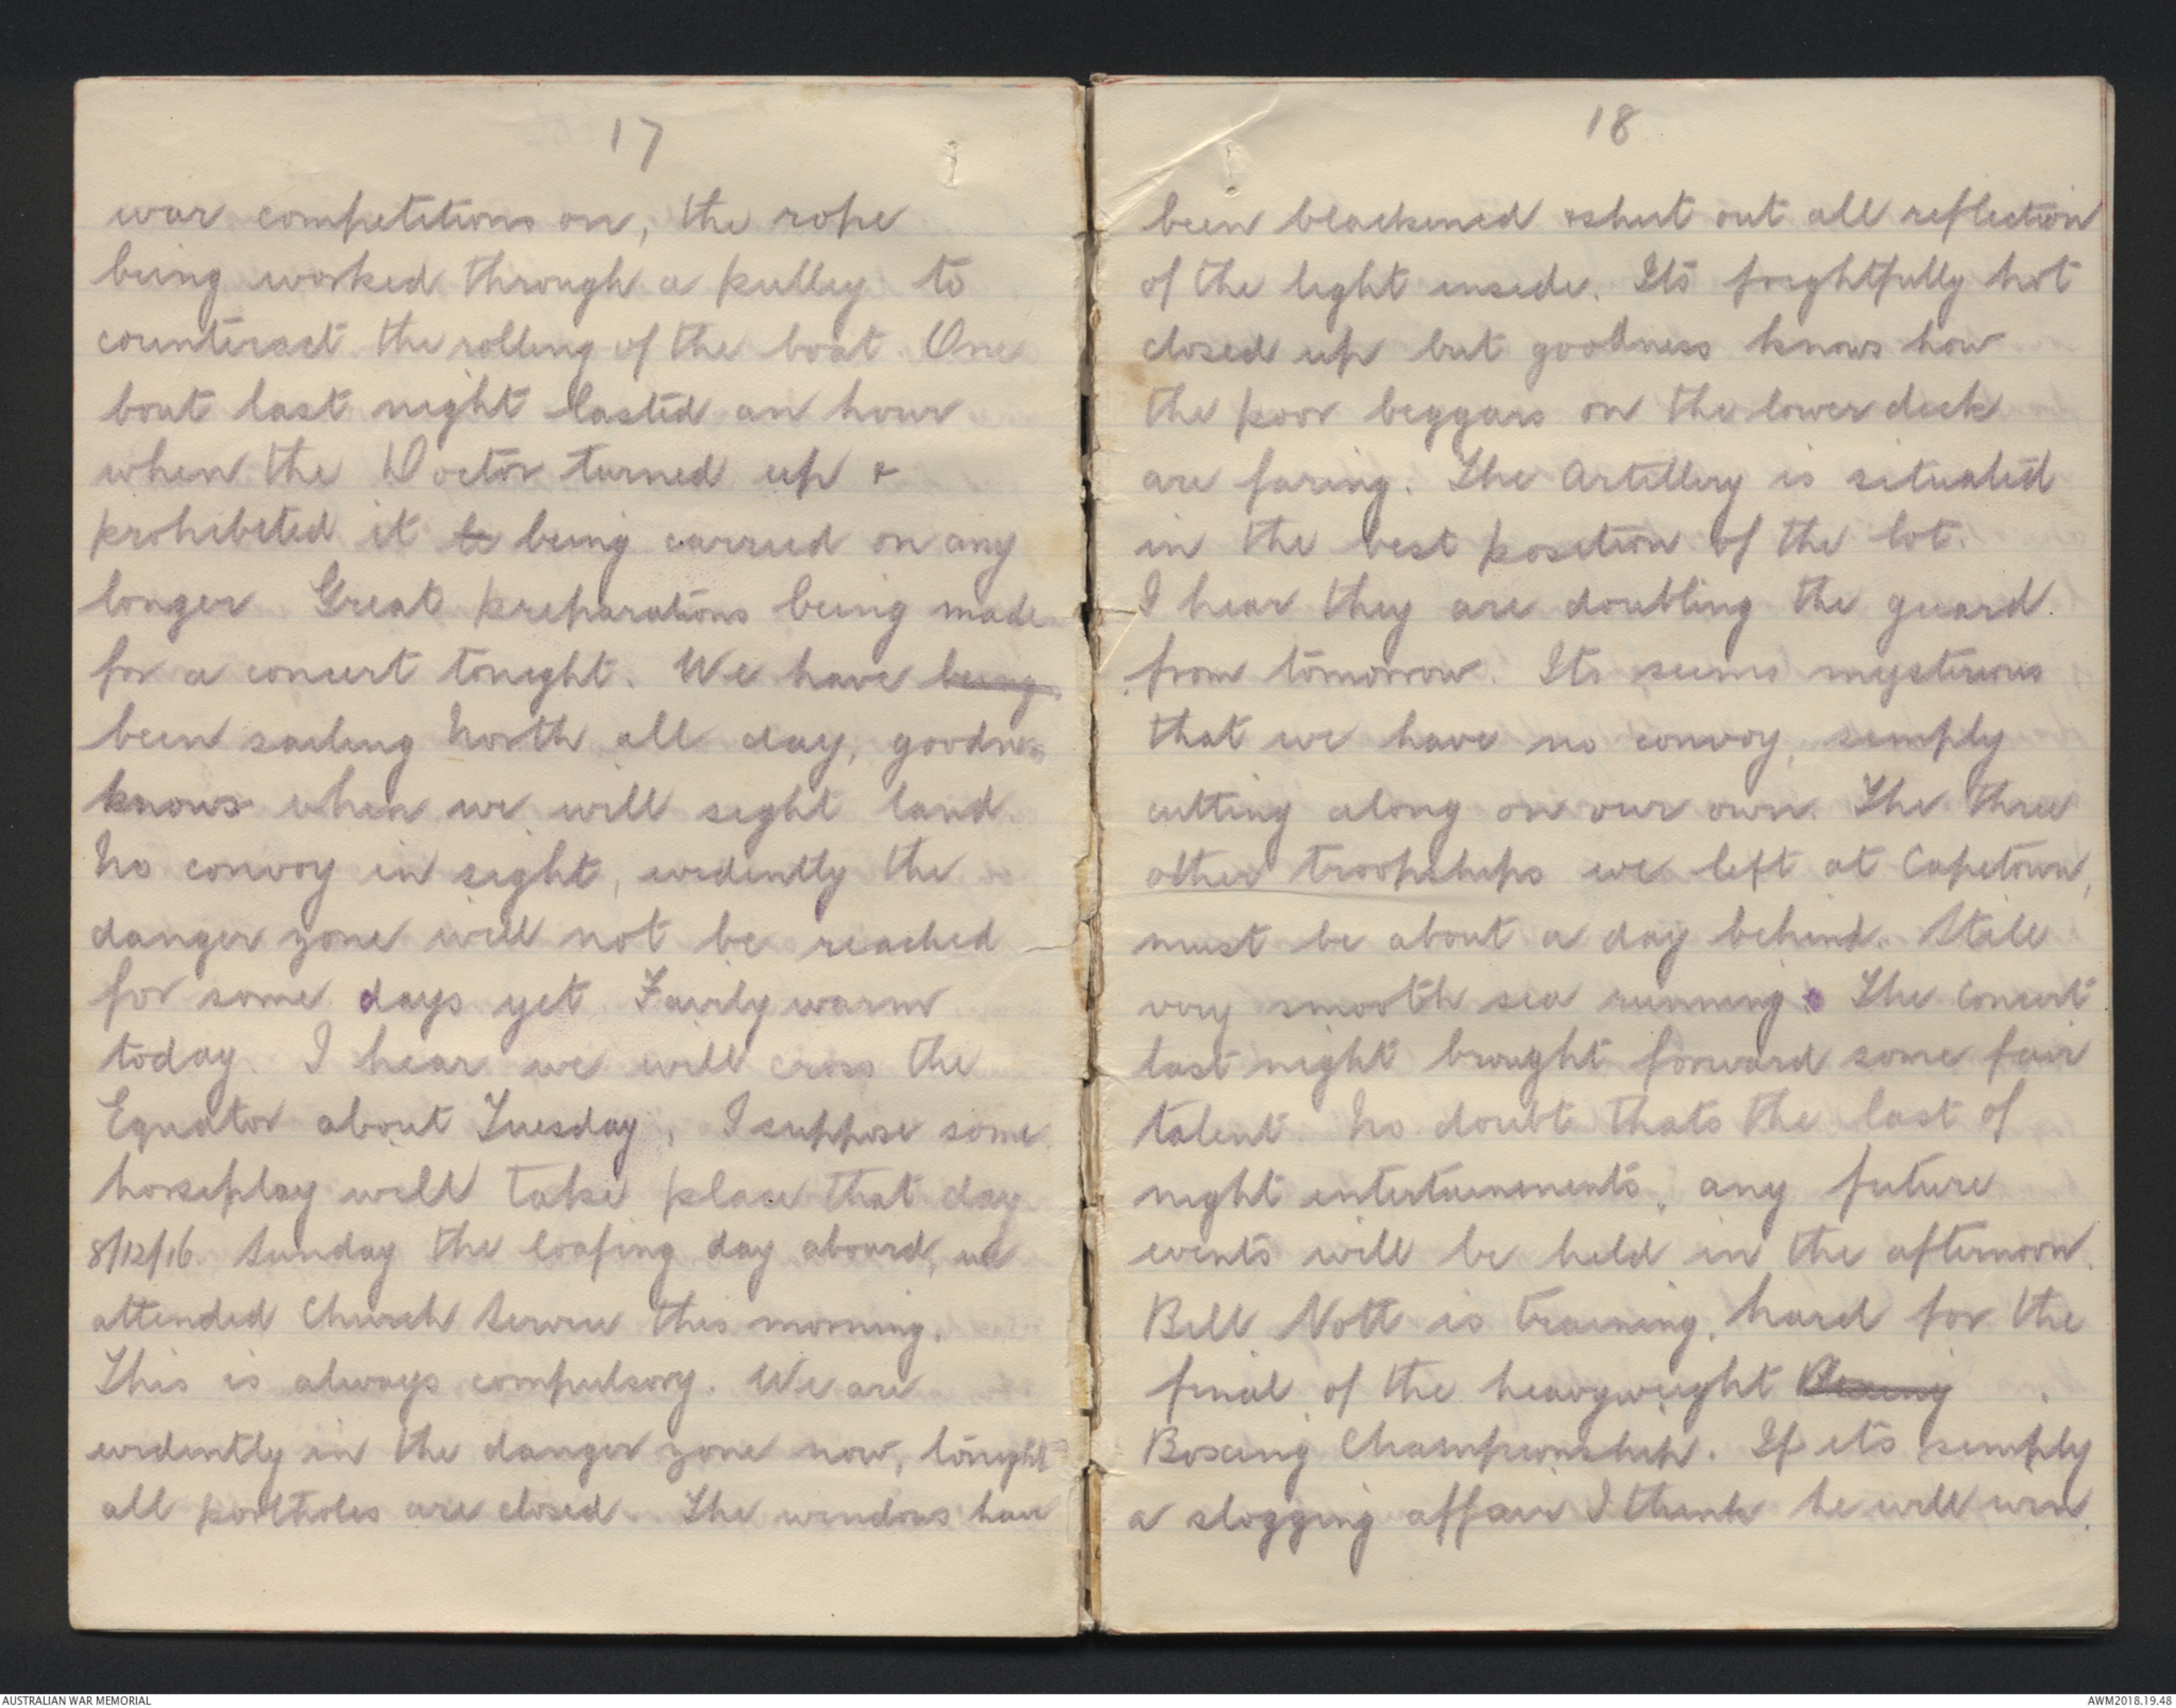 17
war competitions on, the rope
being worked through a pulley to
counteract the rolling of the boat One
bout last night lasted an hour
when the Doctor turned up &
prohibited it to being carried on any
longer Great preparations being made
for a concert tonight. We have being
been sailing North all day, goodness
knows when we will sight land.
No convoy in sight, evidently the
danger zone will not be reached
for some days yet Fairly warm
today. I hear we will cross the
Equator about Tuesday, I suppose some
horseplay will take place that day
8/12/16. Sunday the loafing day aboard, we
attended Church Service this morning.
This is always compulsory. We are
evidently in the danger zone now, tonight
all portholes are closed. The windows have
18
been blackened & shut out all reflection
of the light inside. Its frightfully hot
closed up but goodness knows how
the poor beggars on the lower deck
are faring. The Artillery is situated
in the best position of the lot.
I hear they are doubling the guard
from tomorrow. Its seems mysterious
that we have no convoy, simply
cutting along on our own. The three
other troopships we left at Capetown,
must be about a day behind. Still
very smooth sea running. The Concert
last night brought forward some fair
talent. No doubt thats the last of
night entertainments, any future
events will be held in the afternoon.
Bill Nott is training hard for the
final of the heavyweight Boxing
Boxing Championship. If its simply
a slogging affair I think he will win.
AUSTRALIAN WAR MEMORIAL
AWM2018.19.48